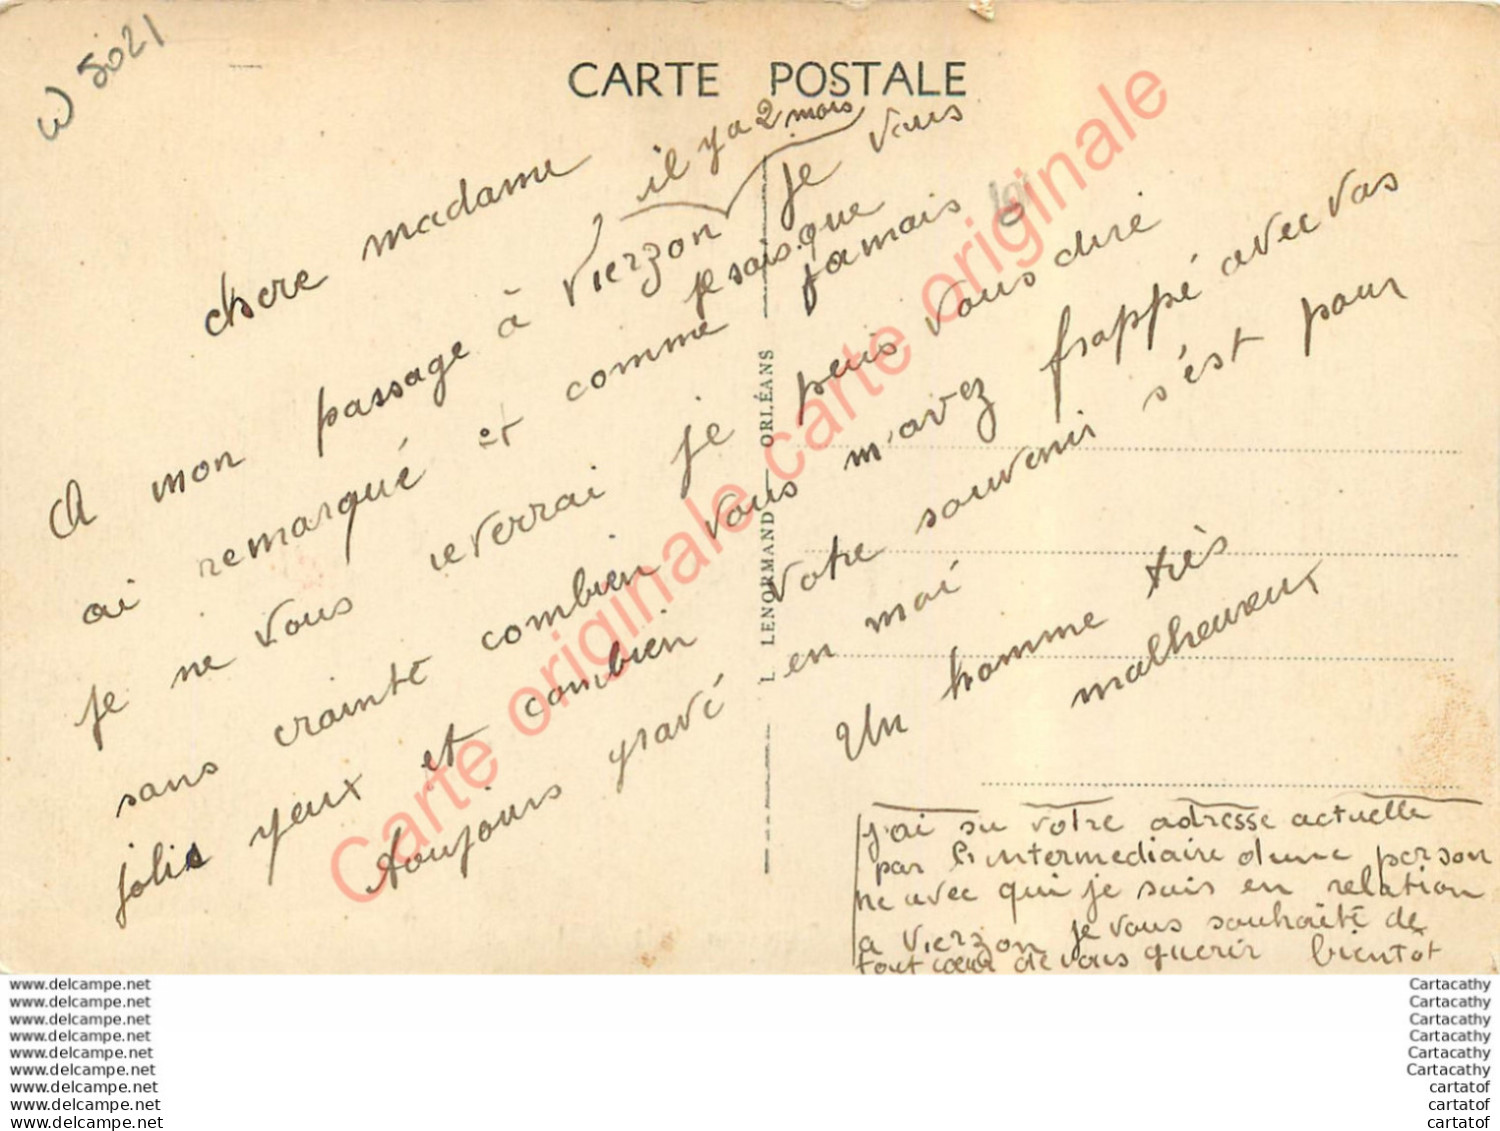 W 5021
CARTE POSTALE
chere madame
il y a 2 mois
A mon passage à Vierzon je vous
ai remarqué et comme je sais que jamais
je ne vous reverrai je puis vous dire
sans crainte combien vous m'avez frappé avec vos
jolis yeux et combien votre souvenir s'est pour
toujours gravé en moi
Un homme très
malheureux
j'ai su votre adresse actuelle
par l'intermediaire d'une person
ne avec qui je suis en relation
a Vierzon je vous souhaite de
tout cœur de vous guerir bientot
L. LENORMAND ORLÉANS
Carte originale carte originale
www.delcampe.net
www.delcampe.net
www.delcampe.net
www.delcampe.net
www.delcampe.net
www.delcampe.net
www.delcampe.net
www.delcampe.net
www.delcampe.net
Cartacathy
Cartacathy
Cartacathy
Cartacathy
Cartacathy
Cartacathy
cartatof
cartatof
cartatof